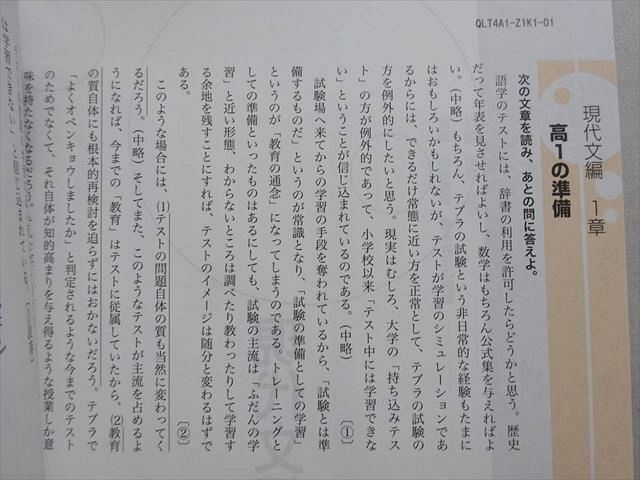 QLT4A1-Z1K1-01
現代文編 1章
高1の準備
次の文章を読み、あとの問に答えよ。
語学のテストには、辞書の利用を許可したらどうかと思う。歴史
だって年表を見させればよいし、数学はもちろん公式集を与えればよ
い。（中略）もちろん、テブラの試験という非日常的な経験もたまに
はおもしろいかもしれないが、テストが学習のシミュレーションであ
るからには、できるだけ常態に近い方を正常として、テブラの試験の
方を例外的にしたいと思う。現実はむしろ、大学の「持ち込みテス
ト」の方が例外的であって、小学校以来「テスト中には学習できな
い」ということが信じ込まれているのである。（中略）〔①〕
試験場へ来てからの学習の手段を奪われているから、「試験とは準
備するものだ」というのが常識となり、「試験の準備としての学習」
というのが「教育の通念」になってしまうのである。トレーニングと
しての準備といったものはあるにしても、試験の主流は「ふだんの学
習」と近い形態、わからないところは調べたり教わったりして学習す
る余地を残すことにすれば、テストのイメージは随分と変わるはずで
ある。〔②〕
このような場合には、⑴テストの問題自体の質も当然に変わってく
るだろう。（中略）そしてまた、このようなテストが主流を占めるよ
うになれば、今までの「教育」はテストに従属していたから、⑵教育
の質自体にも根本的再検討を迫らずにはおかないだろう。テブラで
「よくオベンキョウしましたか」と判定されるような今までのテスト
のためでなくて、それ自体が知的高まりを与え得るような授業しか意
味を持たなくなるだろう。